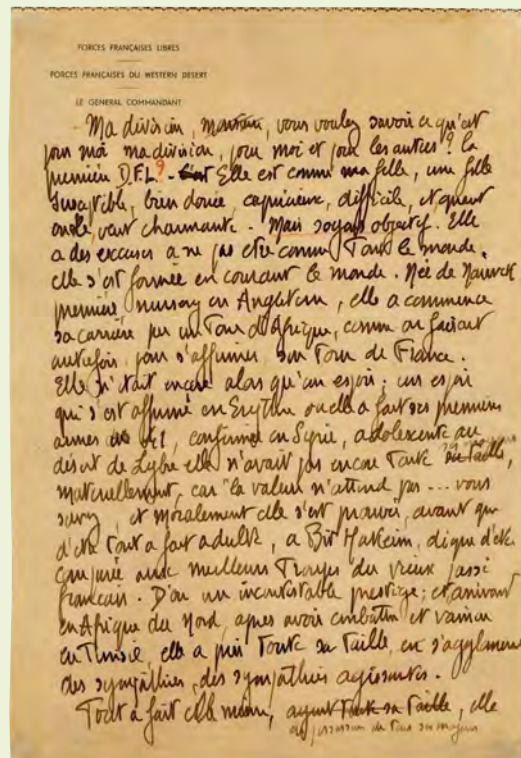 FORCES FRANÇAISES LIBRES
FORCES FRANÇAISES DU WESTERN DESERT
LE GENERAL COMMANDANT
Ma division, monsieur, vous voulez savoir ce qu'est
pour moi ma division, pour moi et pour les autres ? la
première D.F.L. ? - C'est Elle est comme ma fille, une fille
susceptible, bien douce, capricieuse, difficile, et quand
elle veut charmante. Mais soyons objectif. Elle
a des excuses a ne pas etre comme Tout le monde.
elle s'est formée en courant le monde. Née de
première nursery en Angleterre, elle a commencé
sa carrière par un Tour d'Afrique, comme on faisait
autrefois, pour s'affirmer, son Tour de France.
Elle n'était encore alors qu'un espoir ; un espoir
qui s'est affirmé en Erythrée ou elle a fait ses premieres
armes, confirmé en Syrie, adolescente au
désert de Lybie elle n'avait pas encore Toute sa Taille,
matériellement, car "la valeur n'attend pas ... vous
savez, et moralement elle s'est prouvé, avant que
d'etre Tout a fait adulte, a Bir Hakeim, digne d'etre
comparée aux meilleurs Troupes du vieux passé
français. D'ou un incontestable prestige ; et arrivant
en Afrique du Nord, apres avoir combattu et vaincu
en Tunisie, elle a pris Toute sa Taille, en s'agglomerant
des sympathies, des sympathies agissantes.
Tout a fait elle meme, ayant Toute sa Taille, elle
en possession de Tous ses moyens